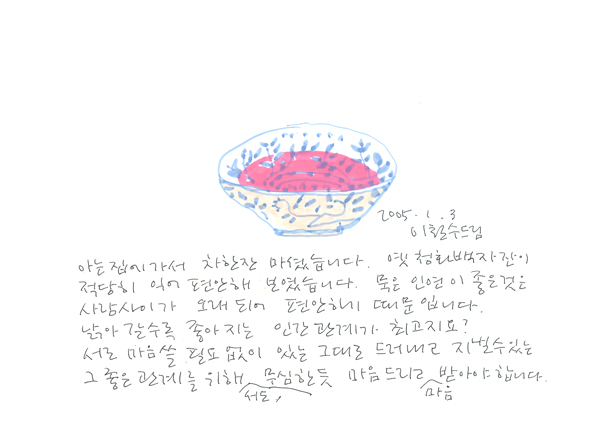 2005. 1. 3
이철수드림
아는 집에 가서 차 한잔 마셨습니다. 옛 청화백자 잔이
적당히 익어 편안해 보였습니다. 묵은 인연이 좋은 것은
사람 사이가 오래 되어 편안하기 때문입니다.
낡아 갈수록 좋아지는 인간관계가 최고지요?
서로 마음 쓸 필요 없이 있는 그대로 드러내고 지낼 수 있는
그 좋은 관계를 위해 서로, 무심한듯 마음 드리고 마음 받아야 합니다.